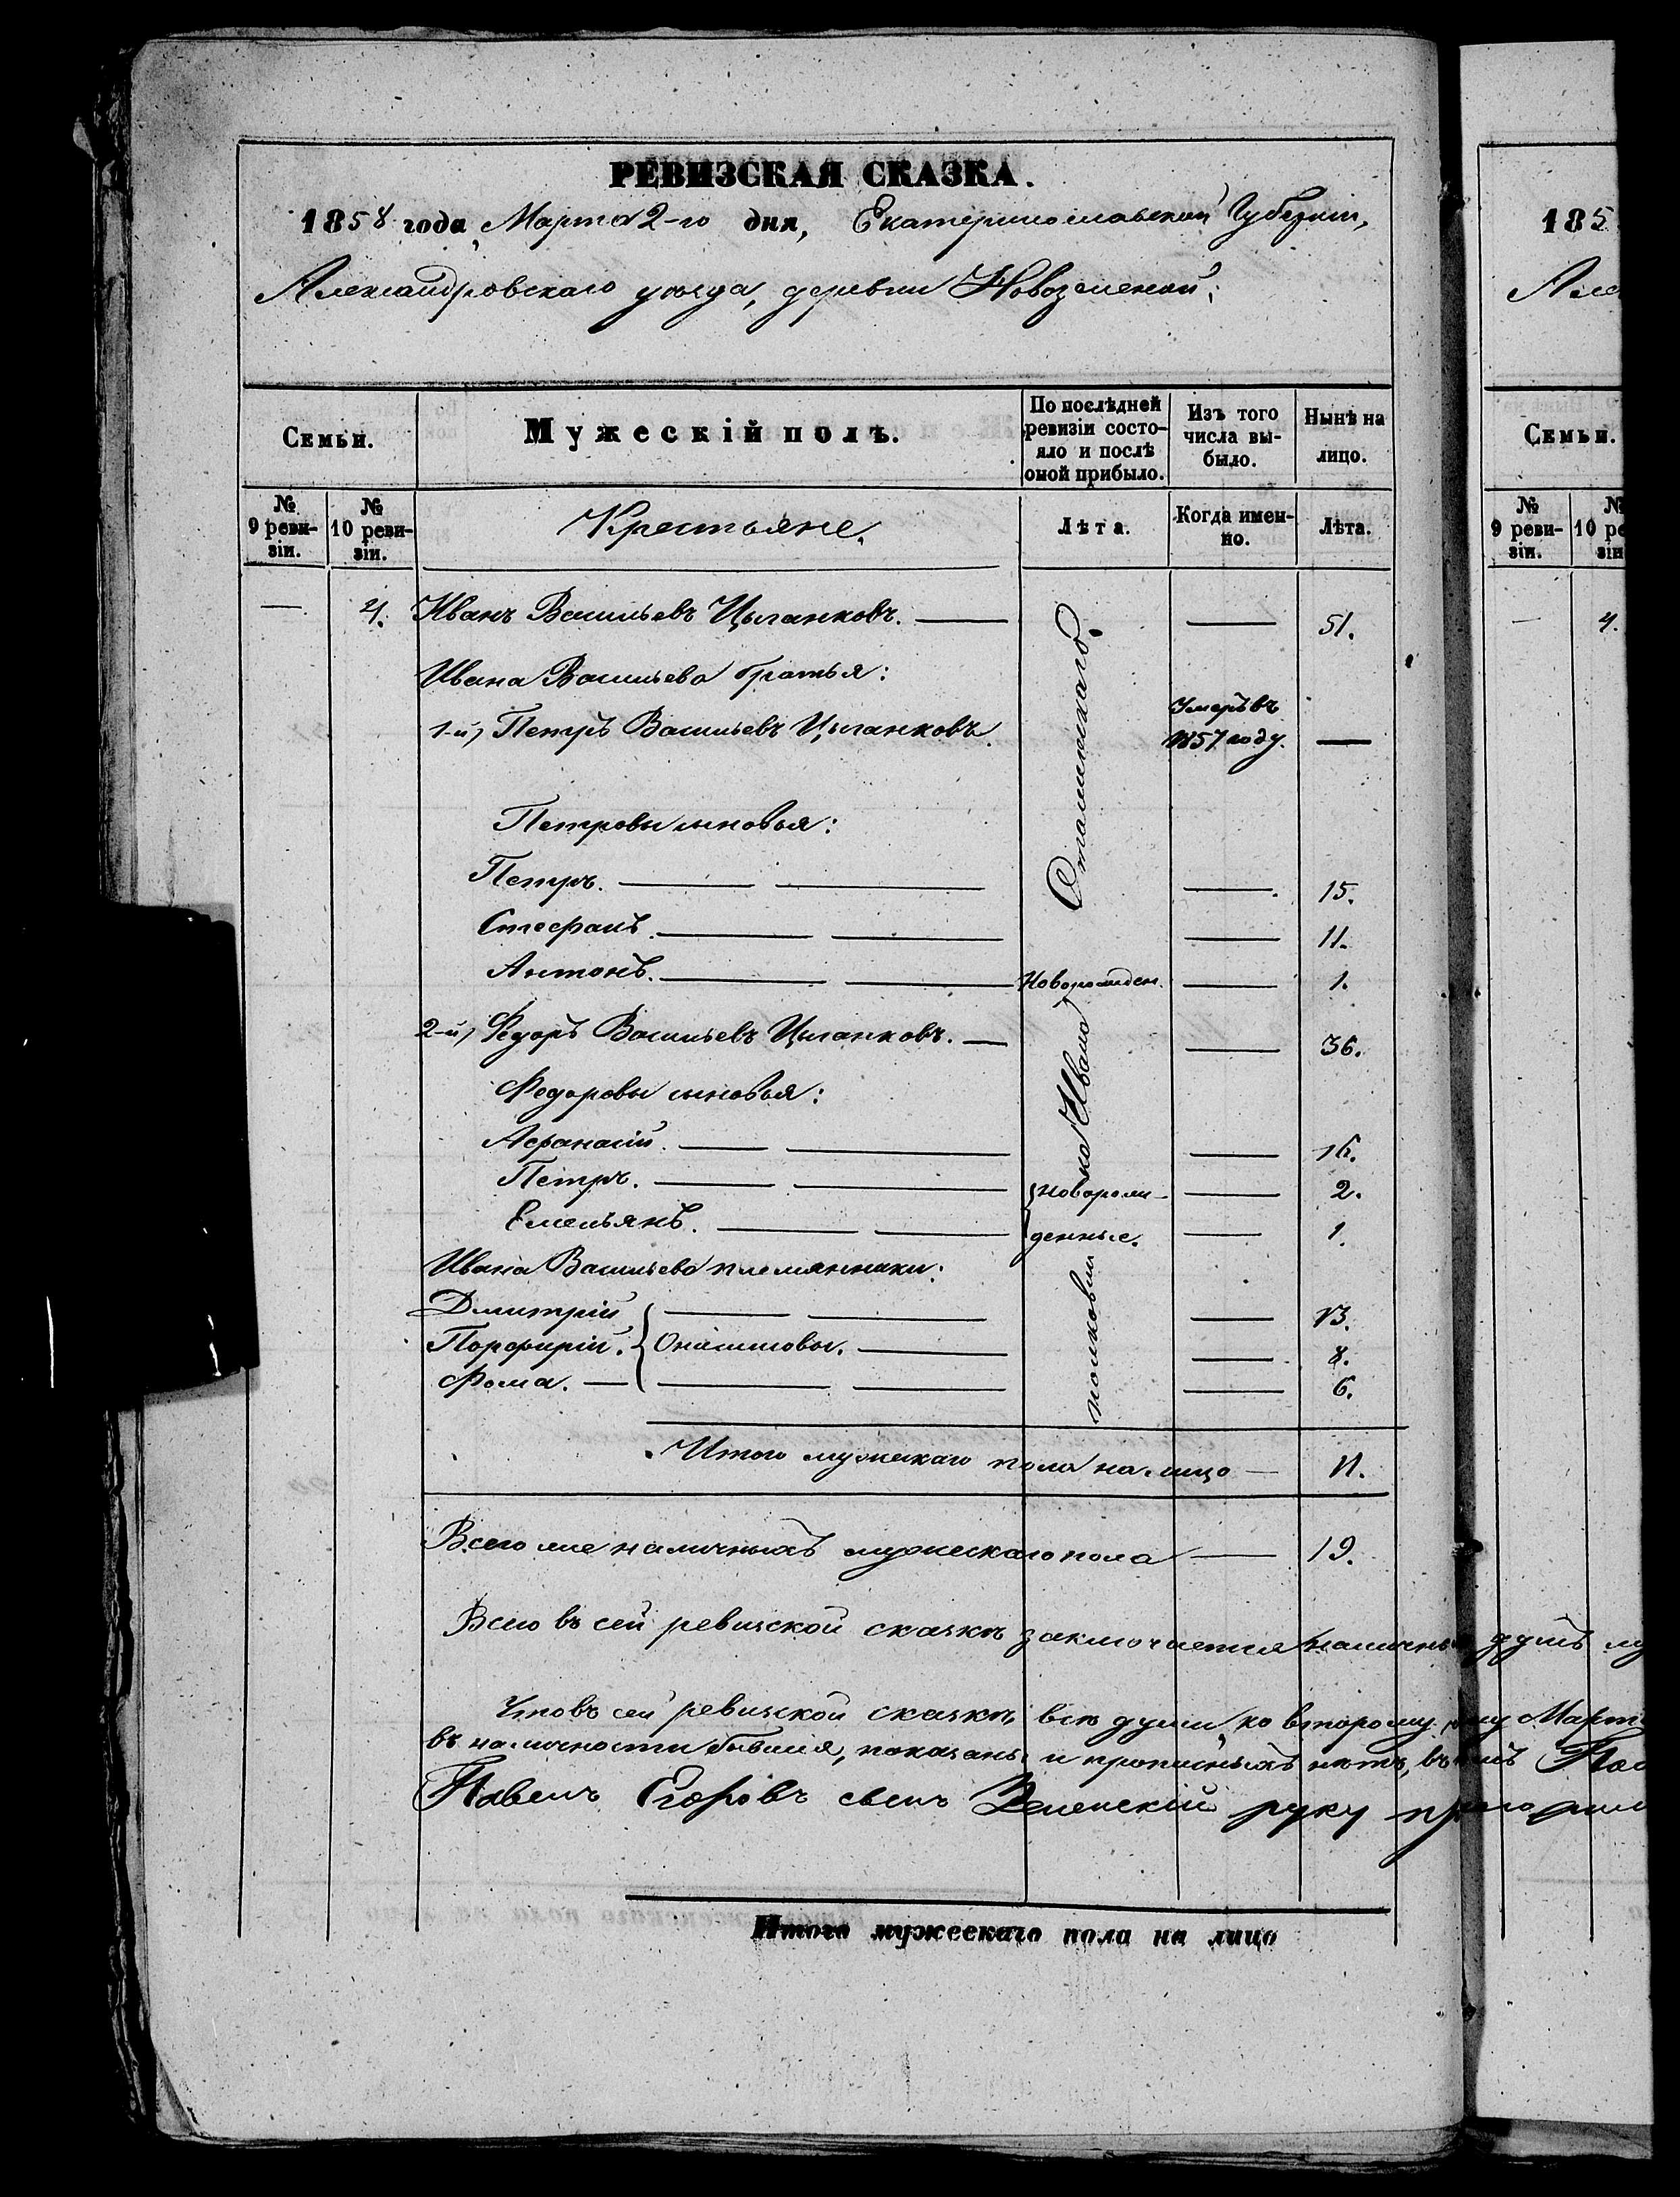 РЕВИЗСКАЯ СКАЗКА.
1858 года Марта 2-го дня, Екатеринославской Губерніи,
Александровскаго уѣзда, деревни
185
Семьи.
Мужескій полъ.
По послѣдней ревизіи состояло и послѣ оной прибыло.
Изъ того числа выбыло.
Нынѣ на лицо.
Семьи.
№ 9 ревизіи.
№ 10 ревизіи.
Крестьяне.
Лѣта.
Когда именно.
Лѣта.
№ 9 ревизіи.
4. Иванъ Васильевъ Цыганковъ. — — 51.
4.
Ивана Васильева братья:
1-й, Петръ Васильевъ Цыганковъ. Умеръ въ
1857 году. —
Петровы сыновья:
Петръ. — — — 15.
Стефанъ. — — — 11.
Антонъ. — — Новорожден. — 1.
2-й, Федоръ Васильевъ Цыганковъ. — — 36.
Федоровы сыновья:
Афанасій. — — — 16.
Петръ. — — новорож- — 2.
Емельянъ. — — денные. — 1.
Ивана Васильева племянники:
Дмитрій — — — 13.
Порфирій. — — 8.
Фома. — — — — 6.
Ивана
Итого мужескаго пола на лицо — 11.
Всего же наличныхъ мужескаго пола — 19.
Всего въ сей ревизской сказкѣ заключается душъ
Что въ сей ревизской сказкѣ всѣ души, ко второму Марта
въ наличности бывшія, показаны и прописныхъ нѣтъ, въ
Павелъ Егоровъ сынъ Зеленскій руку
Итого мужескаго пола на лицо